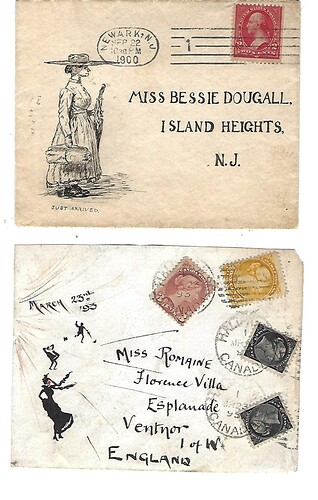 NEWARK, N.J.
SEP 22
1900
1
MISS BESSIE DOUGALL,
ISLAND HEIGHTS,
N.J.
JUST ARRIVED.
MARCH 23rd
'93
CANADA
Miss Romaine
Florence Villa
Esplanade
Ventnor
I of W
ENGLAND
CANADA
CANADA